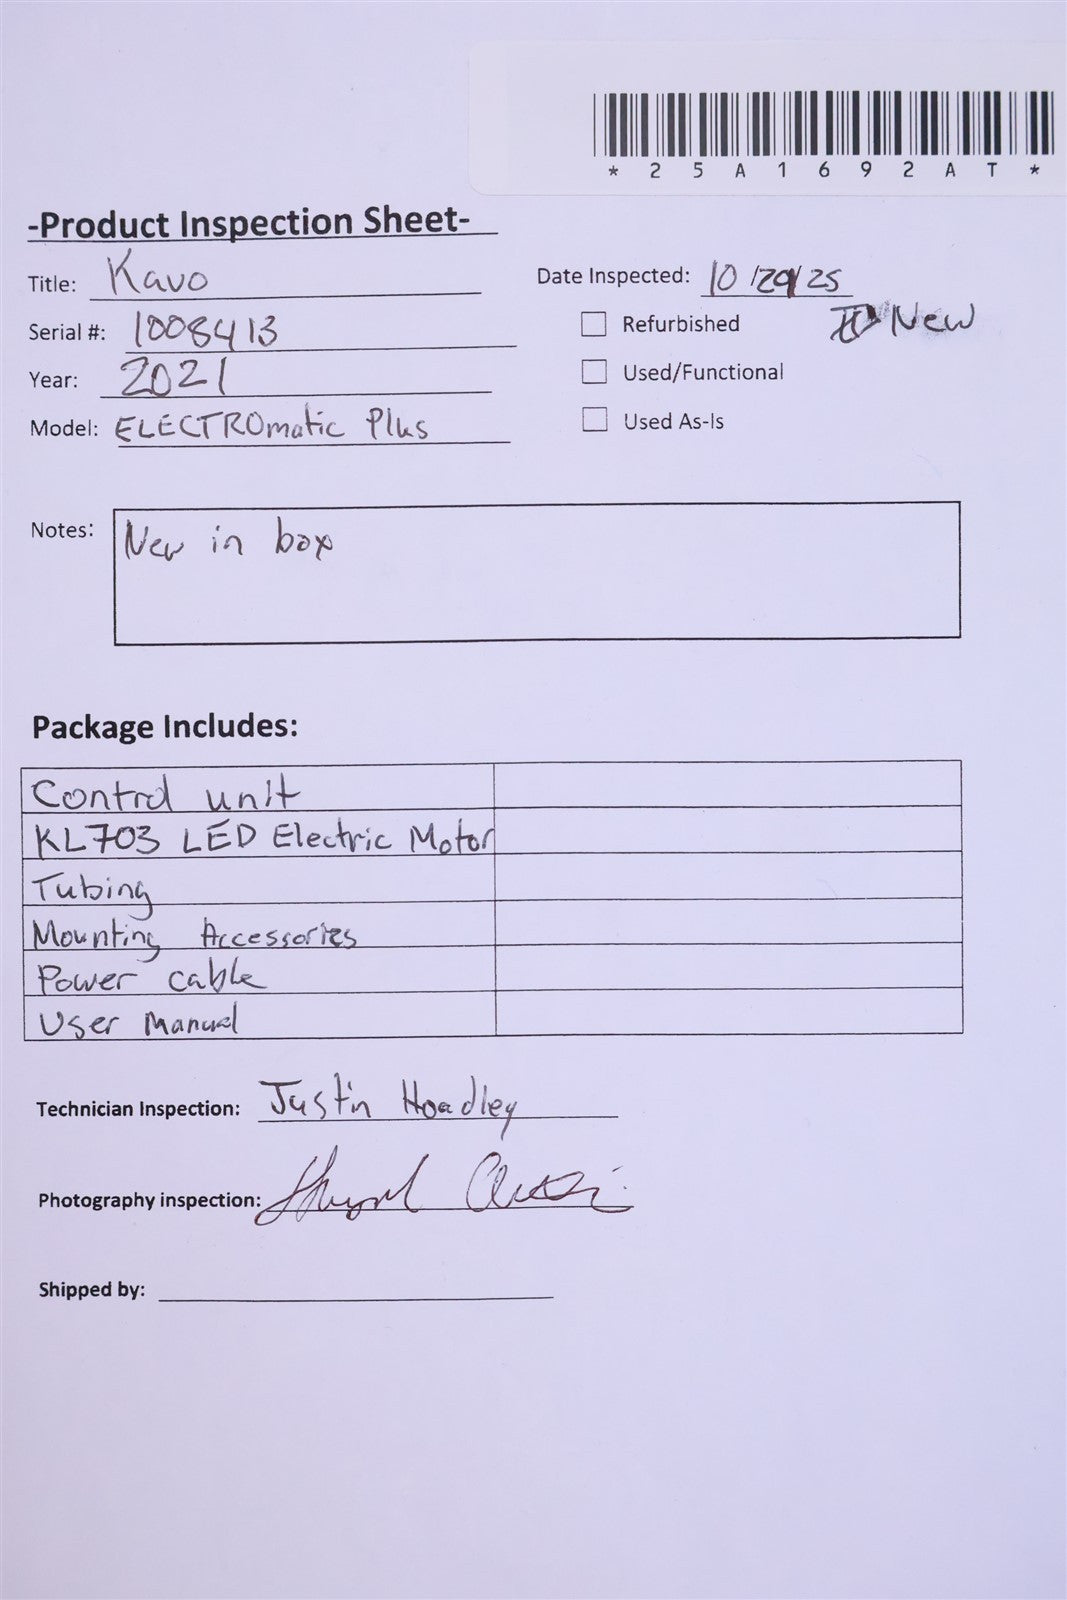 *25A1692AT*
-Product Inspection Sheet-
Title: Kavo
Date Inspected: 10/29/25
Serial #: 1008413
Refurbished
New
Year: 2021
Used/Functional
Model: ELECTROmatic Plus
Used As-Is
Notes: New in box
Package Includes:
Control unit
KL703 LED Electric Motor
Tubing
Mounting Accessories
Power cable
User Manual
Technician Inspection: Justin Hoadley
Photography inspection:
Shipped by: